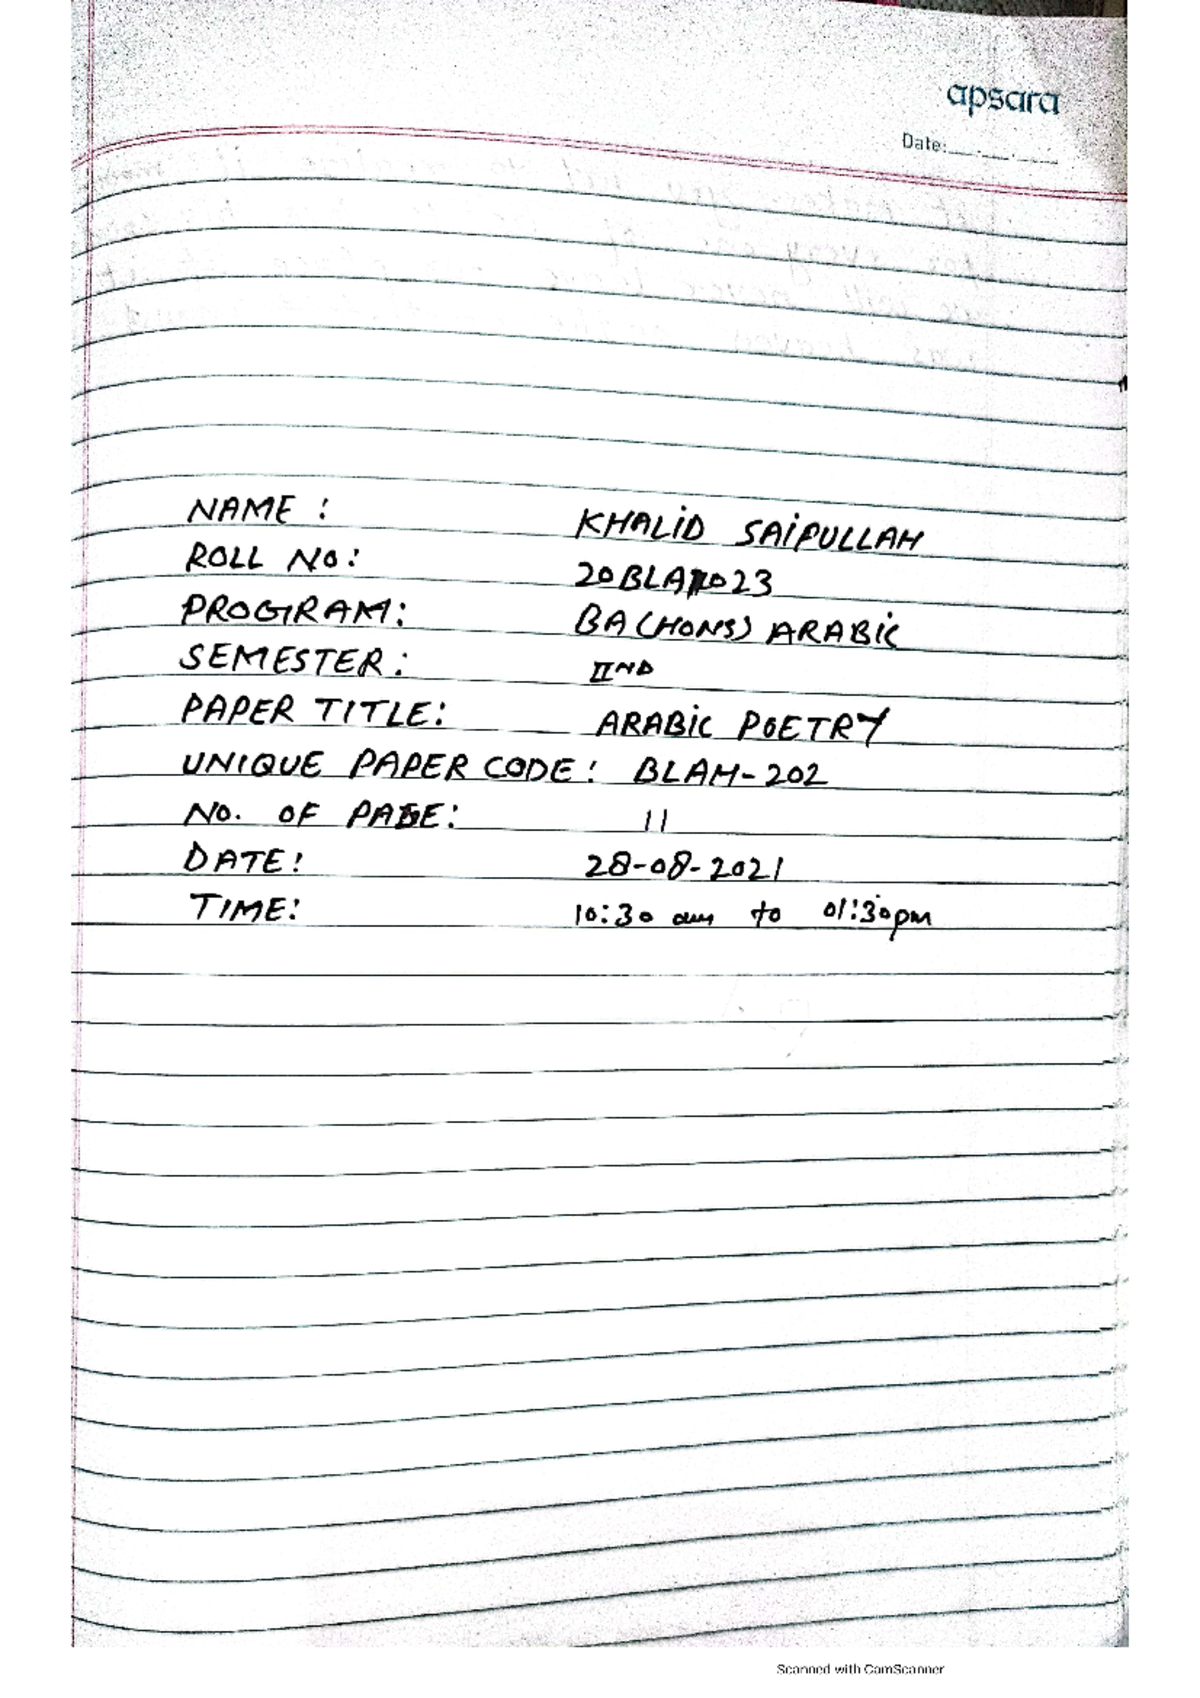 apsara
Date:
NAME : KHALID SAIFULLAH
ROLL NO:
PROGRAM: BA(HONS) ARABIC
SEMESTER: IIND
PAPER TITLE: ARABIC POETRY
UNIQUE PAPER CODE: BLAH-202
NO. OF PAGE: 11
DATE: 28-08-2021
TIME: 10:30 am to 01:30pm
Scanned with CamScanner